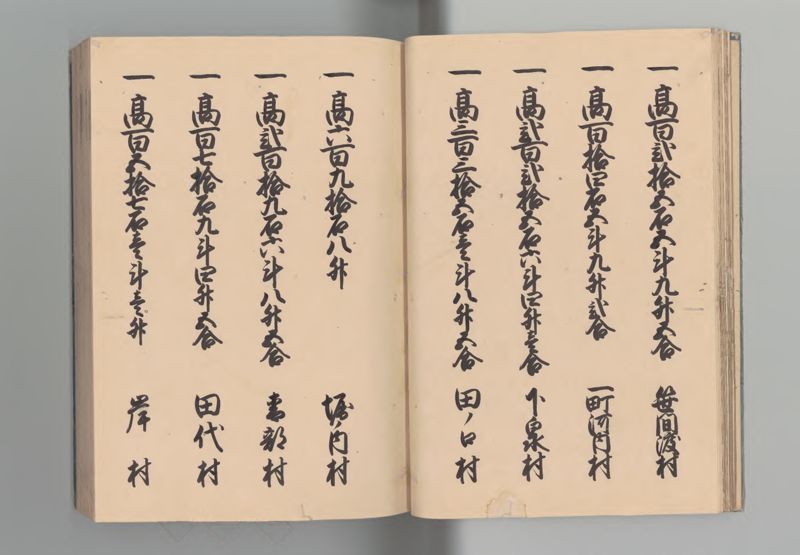 一高百弐拾五石五斗九升五合 笹間渡村
一高百拾四石五斗九升弐合 一町河内村
一高弐百弐拾五石六斗四升壱合 下泉村
一高三百三拾五石壱斗八升五合 田ノ口村
一高六百九拾石八升 堀ノ内村
一高弐百拾九石六斗八升五合 青部村
一高百七拾石九斗四升五合 田代村
一高百五拾七石壱斗壱升 岸村